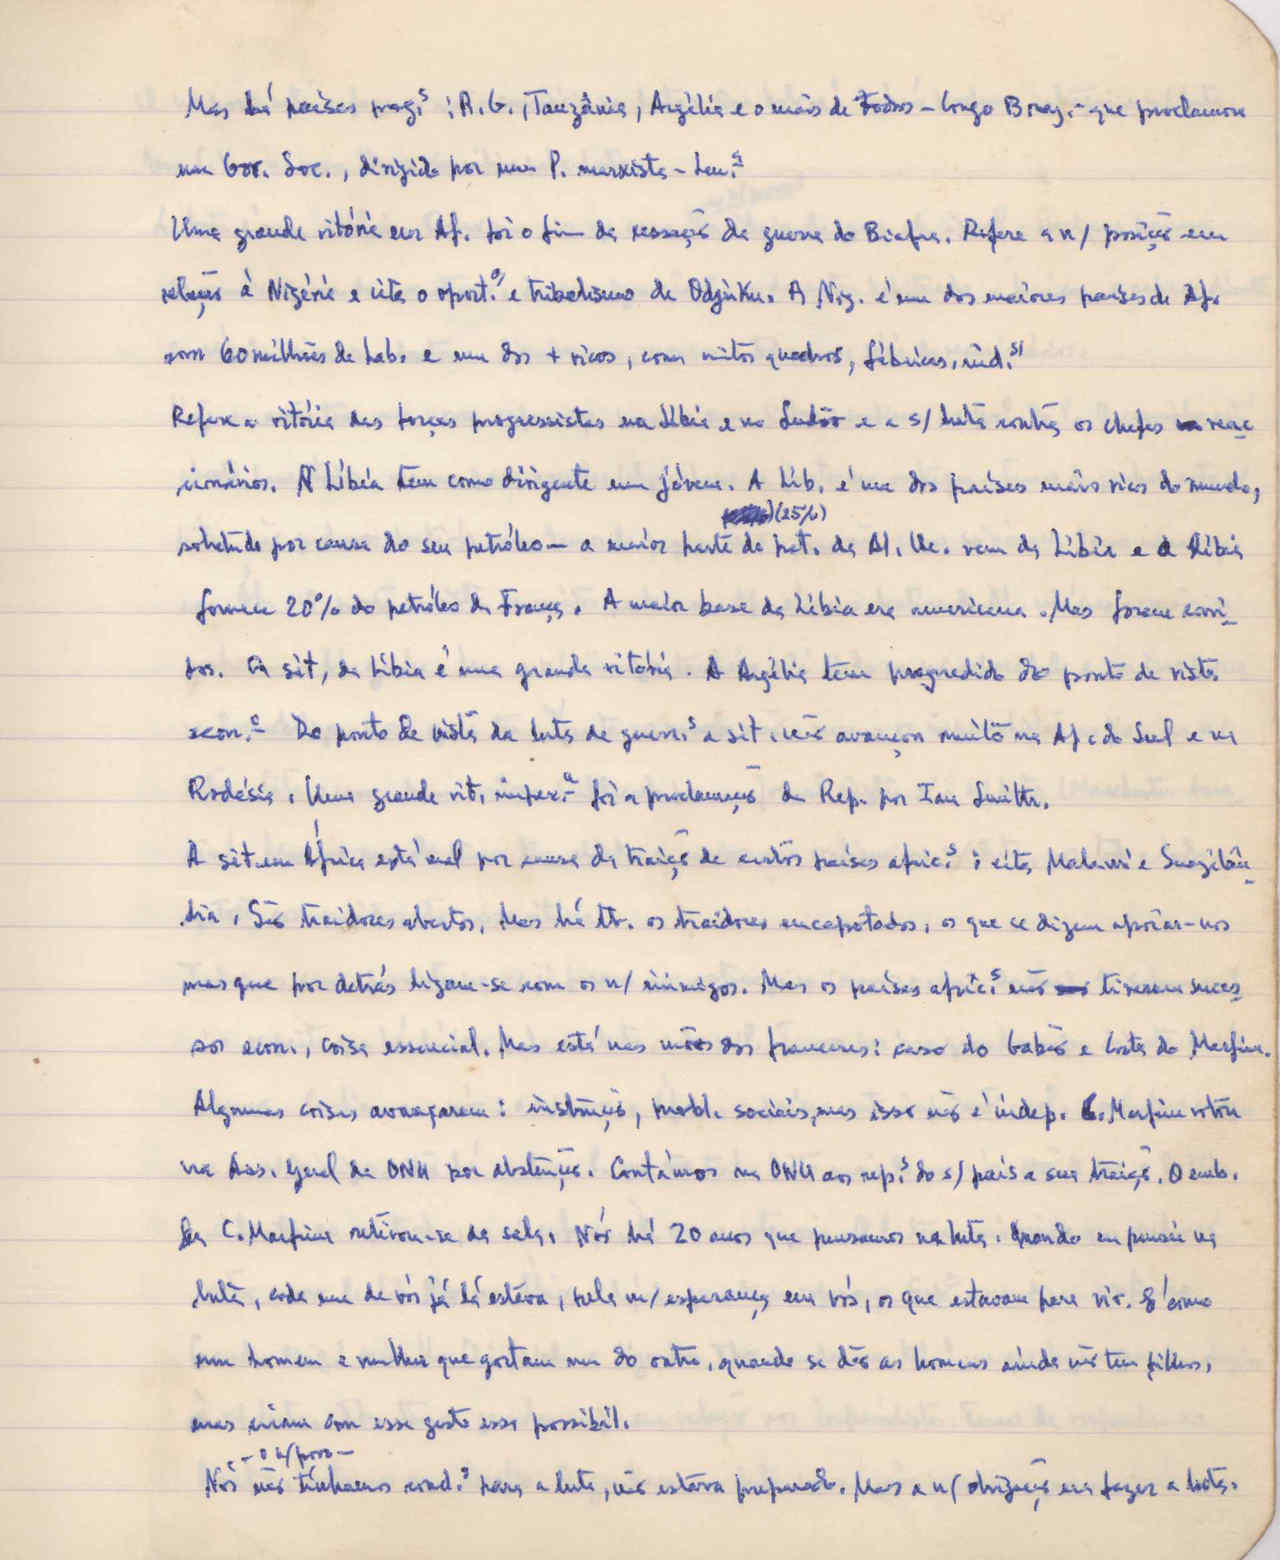 Mas há países prog.s: R.G., Tanzânia, Argélia e o mais de todos - Congo Braz. - que proclamou
um Gov. Soc., dirigido por um P. marxista-Len.a
Uma grande vitória em Af. foi o fim da secessão da guerra do Biafra. Refere a n/ posição em
relação à Nigéria e cita o oport.o e tribalismo de Odjuku. A Nig. é um dos maiores países de Af.
com 60 milhões de hab. e um dos + ricos, com mitos quadros, fábricas, ind.s/
Refere a vitória das forças progressistas na Líbia e no Sudão e a s/ luta contra os chefes reac
cionários. A Líbia tem como dirigente um jóvem. A Lib. é um dos países mais ricos do mundo,
(25%)
sobretudo por causa do seu petróleo - a maior parte do pet. da Al. Oc. vem da Líbia e a Líbia
fornece 20% do petróleo da França. A maior base da Líbia era americana. Mas foram corri-
dos. A sit. da Líbia é uma grande vitória. A Argélia tem progredido do ponto de vista
econ.o Do ponto de vista da luta de guerri.s a sit. não avançou muito na Af. do Sul e na
Rodésia. Uma grande vit. imper.a foi a proclamação da Rep. por Ian Smith.
A sit. em África está mal por causa da traição de certos países afric.s: cita Malawi e Suazilân-
dia. São traidores abertos. Mas há tb. os traidores encapotados, os que se dizem apoiar-nos
mas que por detrás ligam-se com os n/ inimigos. Mas os países afric.s não tiveram suces-
sos econ., coisa essencial. Mas está nas mãos dos franceses: caso do Gabão e Costa do Marfim.
Algumas coisas avançaram: instrução, probl. sociais, mas isso não é indep. C. Marfim votou
na Ass. Geral da ONU por abstenção. Contámos na ONU aos rep.s do s/ país a sua traição. O emb.
da C. Marfim retirou-se da sala. Nós há 20 anos que pensamos na luta. Quando eu pensei na
luta, cada um de vós já lá estava, pela n/ esperança em vós, os que estavam para vir. É como
um homem e mulher que gostam um do outro, quando se dão as homens ainda não tem filhos,
mas criam com esse gesto essa possibil.
- o n/ povo -
Nós não tínhamos cond.s para a luta, não estava preparado. Mas a n/ obrigação era fazer a luta.